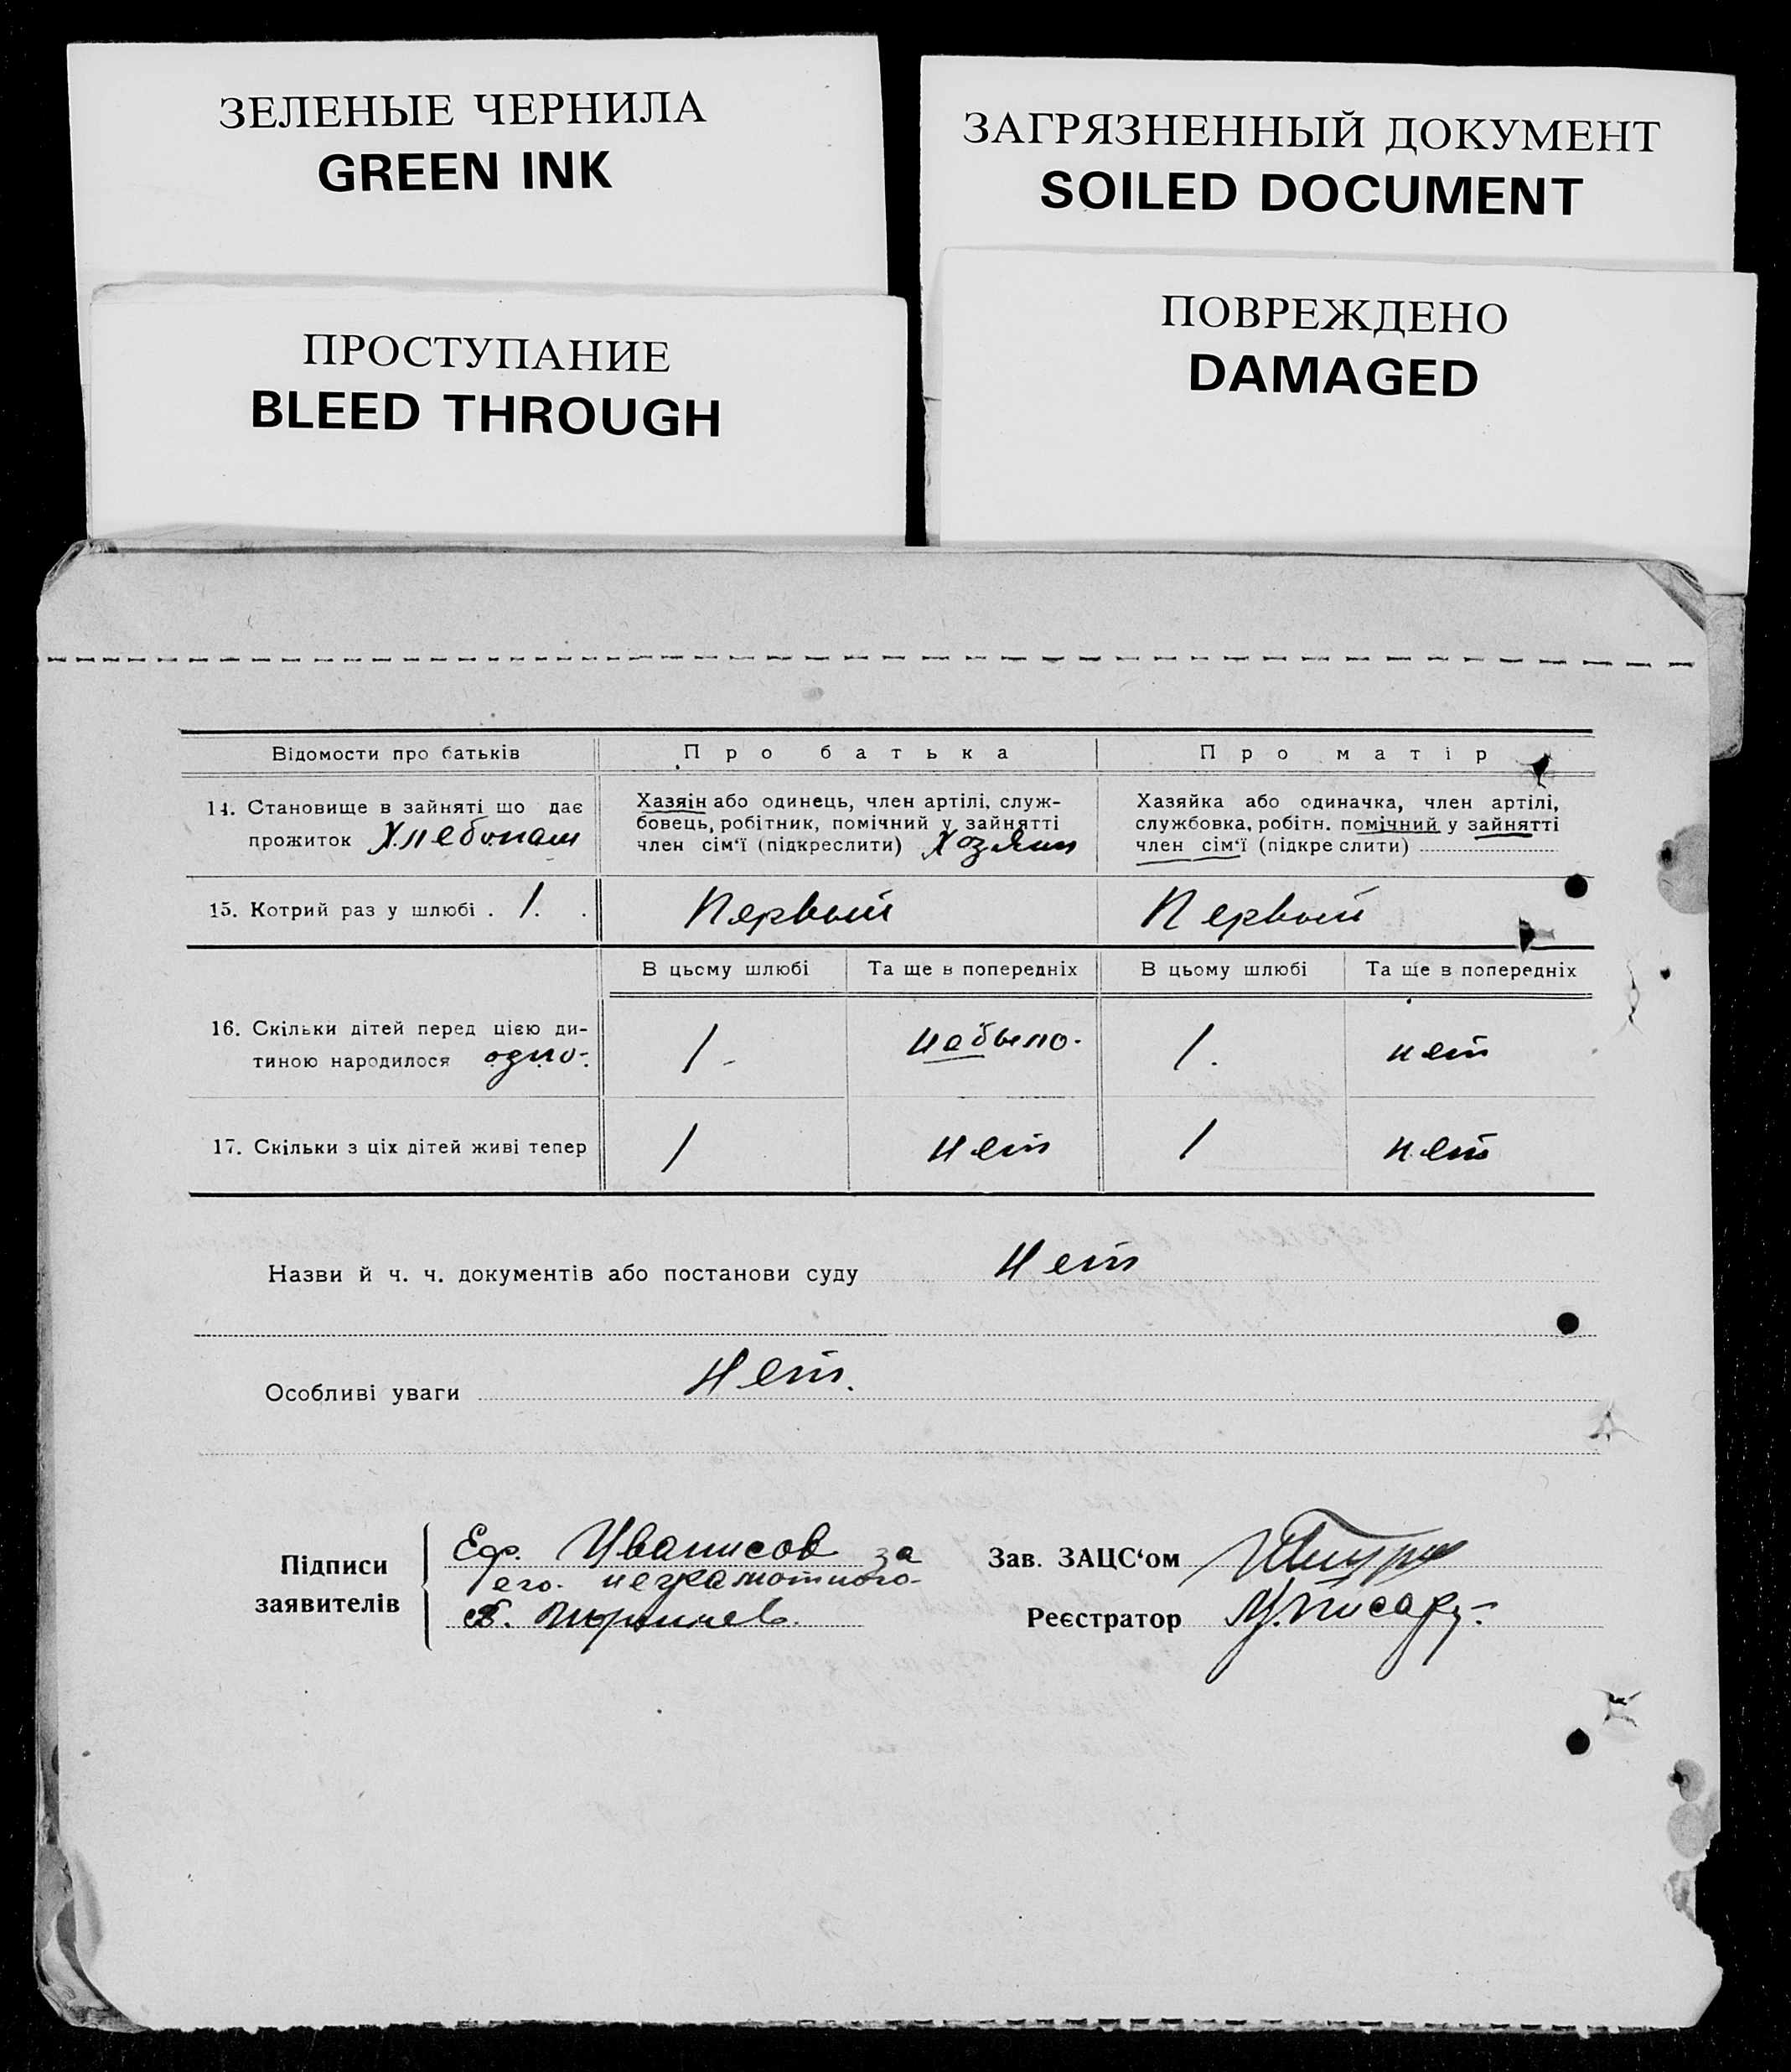 ЗЕЛЕНЫЕ ЧЕРНИЛА
GREEN INK
ЗАГРЯЗНЕННЫЙ ДОКУМЕНТ
SOILED DOCUMENT
ПРОСТУПАНИЕ
BLEED THROUGH
ПОВРЕЖДЕНО
DAMAGED
Відомости про батьків
Про батька
Про матір
14. Становище в зайняті що дає
прожиток Хлебопаш
Хазяїн або одинець, член артілі, служ-
бовець, робітник, помічний у зайнятті
член сім'ї (підкреслити) Хозяин
Хазяйка або одиначка, член артілі,
службовка, робітн. помічний у зайнятті
член сім'ї (підкреслити)
15. Котрий раз у шлюбі . 1. .
Первый
Первый
В цьсму шлюбі
Та ще в попередніх
В цьому шлюбі
Та ще в попередніх
16. Скільки дітей перед цією ди-
тиною народилося одно.
1 -
небыло.
1.
нет
17. Скільки з ціх дітей живі тепер
1
нет
1
нет
Назви й ч. ч. документів або постанови суду Нет
Особливі уваги Нет.
Підписи
заявителів
Еф. Иванисов за
его неграмотного
Зав. ЗАЦС'ом
Реєстратор